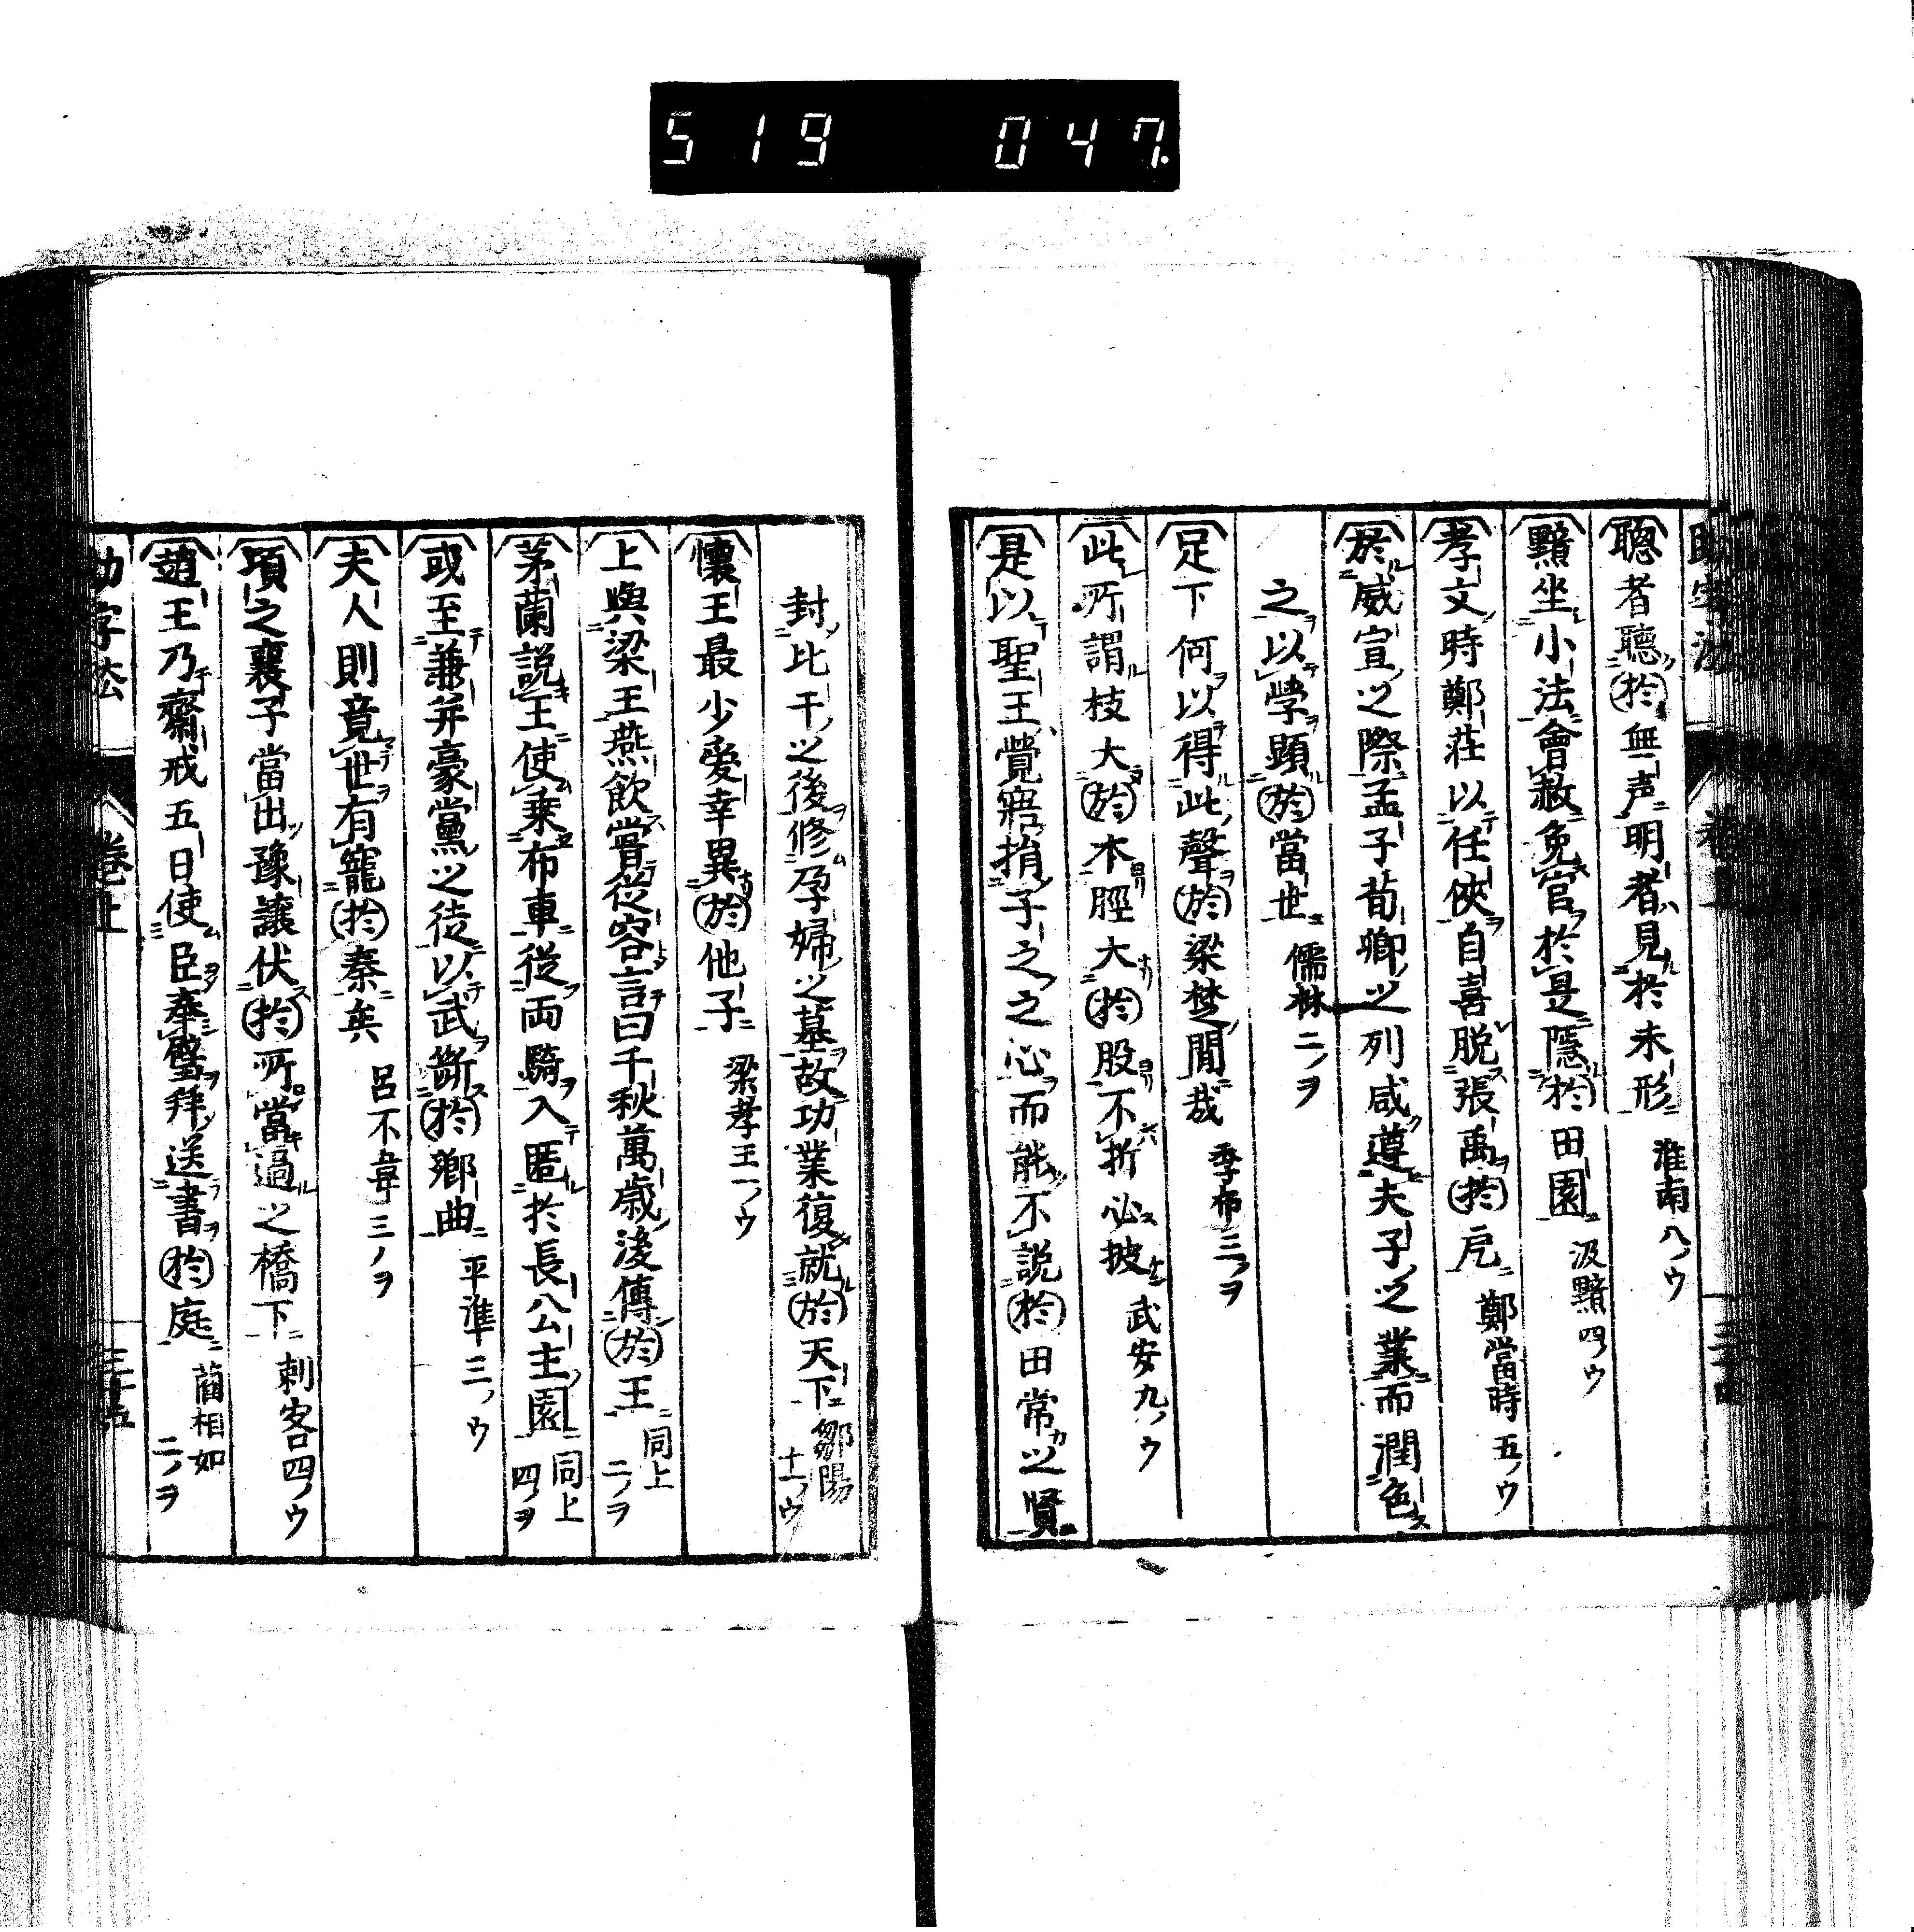 519 047
聰者聽於無声明者見於未形 淮南八ノウ
黯坐小法會赦免官於是隱於田園 汲黯四ノウ
孝文時鄭莊以任俠自喜脱張禹於戹 鄭當時五ノウ
於威宣之際孟子荀卿之列咸遵夫子之業而潤色
之以學顕於當世 儒林二ノヲ
足下何以得此聲於梁楚間哉 季布三ノヲ
此所謂枝大於本脛大於股不折必披 武安九ノウ
是以聖王覺寤捐子之之心而能不説於田常之賢
封比干之後修孕婦之墓故功業復就於天下 鄒陽十一ノウ
懷王最少愛幸異於他子 梁孝王一ノウ
上與梁王燕飲嘗從容言曰千秋萬歳後傳於王 同上二ノヲ
茅蘭説王使乗布車從両騎入匿於長公主園 同上四ノヲ
或至兼并豪黨之徒以武断於郷曲 平準三ノウ
夫人則竟世有寵於秦矣 呂不韋三ノヲ
頃之襄子當出豫讓伏於所當過之橋下 刺客四ノウ
趙王乃齋戒五日使臣奉璧拜送書於庭 藺相如二ノヲ
助字法 卷上 三十五